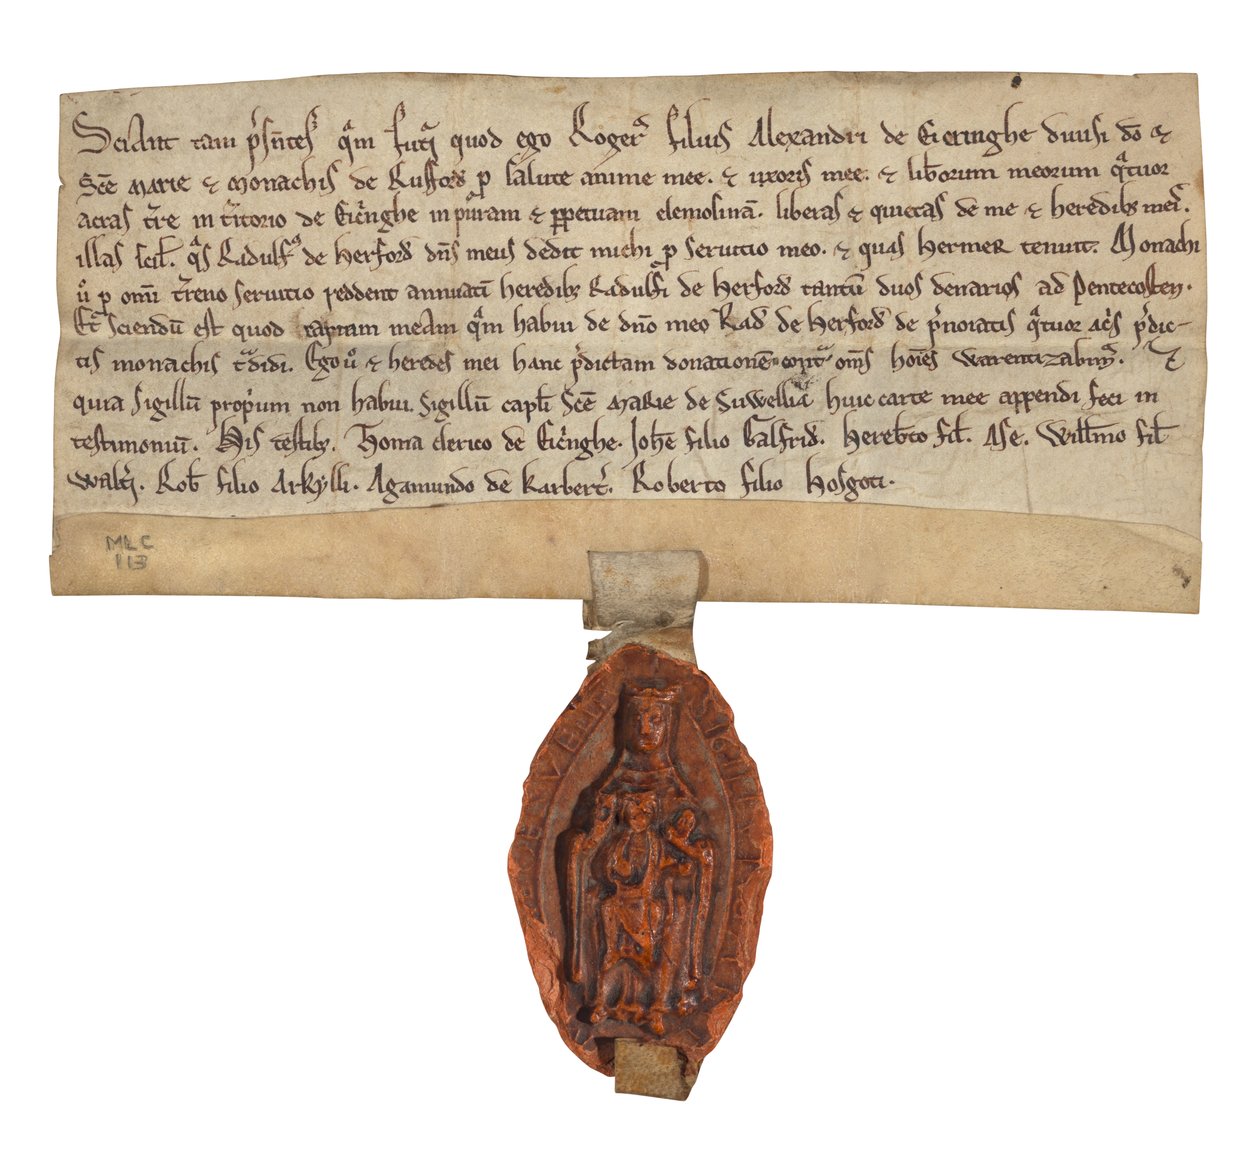 Sciant tam p'sentes q̃m fut'i quod ego Roger' filius Alexandri de Eieringhe diuisi do &
Sc̄e Marie & monachis de Rufford p salute anime mee. & uxoris mee. & lib̄orum meorum q̃tuor
acras t're in t'ritorio de Eic'nghe in puram & ppetuam elemosinā. liberas & quietas de me & heredib; meis.
illas scil̄. q̃s Radulf' de Herford dn̄s meus dedit michi p seruitio meo. & quas Hermer tenuit. Monachi
u° p omī t'reno seruitio reddent annuatī heredib; Radulfi de Herford tantū duos denarios ad Pentecosten.
Et sciendū est quod cartam meam q̃m habui de dn̄o meo Rad̄ de Herford de p'noiatis q̃tuor ac's p'dic-
tis monachis t'didi. Ego u° & heredes mei hanc p'dictam donationē cont' om̄s hoīes Warentizabim'. &
quia sigillū prop'um non habui. Sigillū capl̄i Sc̄e Marie de Suwellia huic carte mee appendi feci in
testimoniū. His testib;. Thoma clerico de Eic'nghe. Joh̄e filio Galfrid̄. Hereb̄to fil̄. Ase. Will̄mo fil̄
Walt'i. Rob̄ filio Arkylli. Agamundo de Karbert'. Roberto filio Hosgoti.
MLC
113